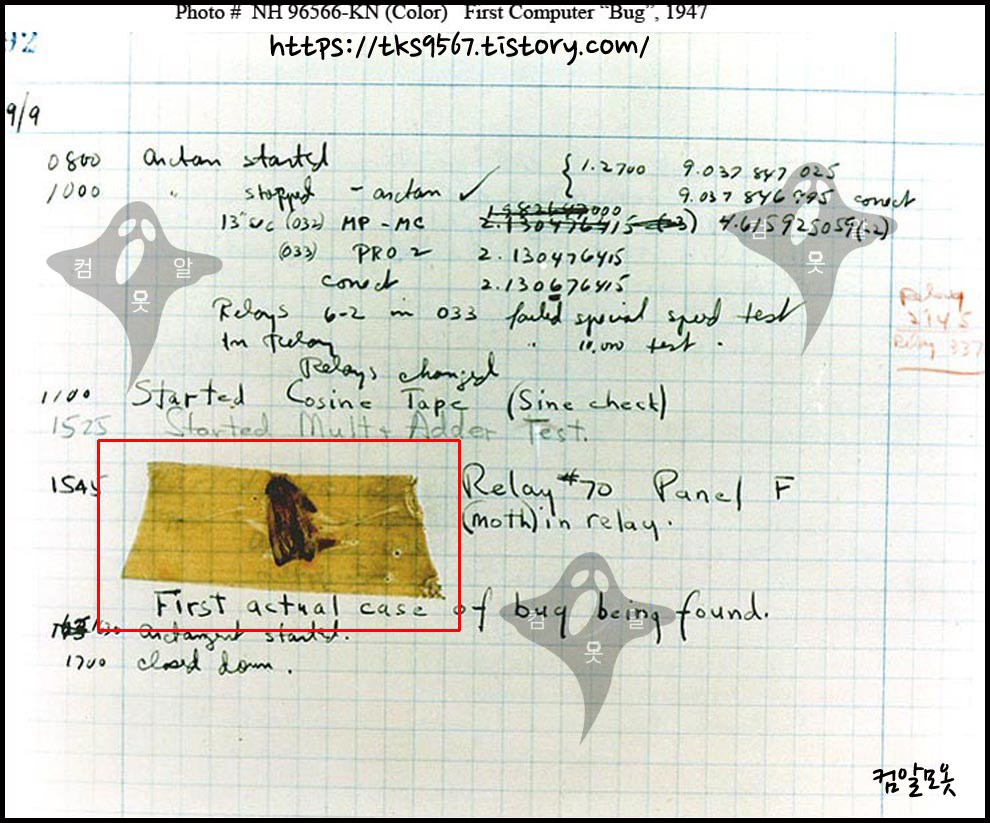 Photo # NH 96566-KN (Color) First Computer “Bug”, 1947
https://tks9567.tistory.com/
92
9/9
0800 antan started
1000 " stopped - antan ✓ { 1.2700 9.037 847 025
9.037 846 995 conect
13" uc (032) MP - MC 2.130476415 (-3) 4.615925059(-2)
(033) PRO 2 2.130476415
conect 2.130676415
Relays 6-2 in 033 failed special speed test
In relay " 10.000 test .
Relays changed
1100 Started Cosine Tape (Sine check)
1525 Started Mult + Adder Test.
1545 Relay #70 Panel F
(moth) in relay.
First actual case of bug being found.
1630 antangent started.
1700 closed down .
Relay
2145
Relay 337
컴 알
못
컴 알
못
컴 알
못
컴알모옷